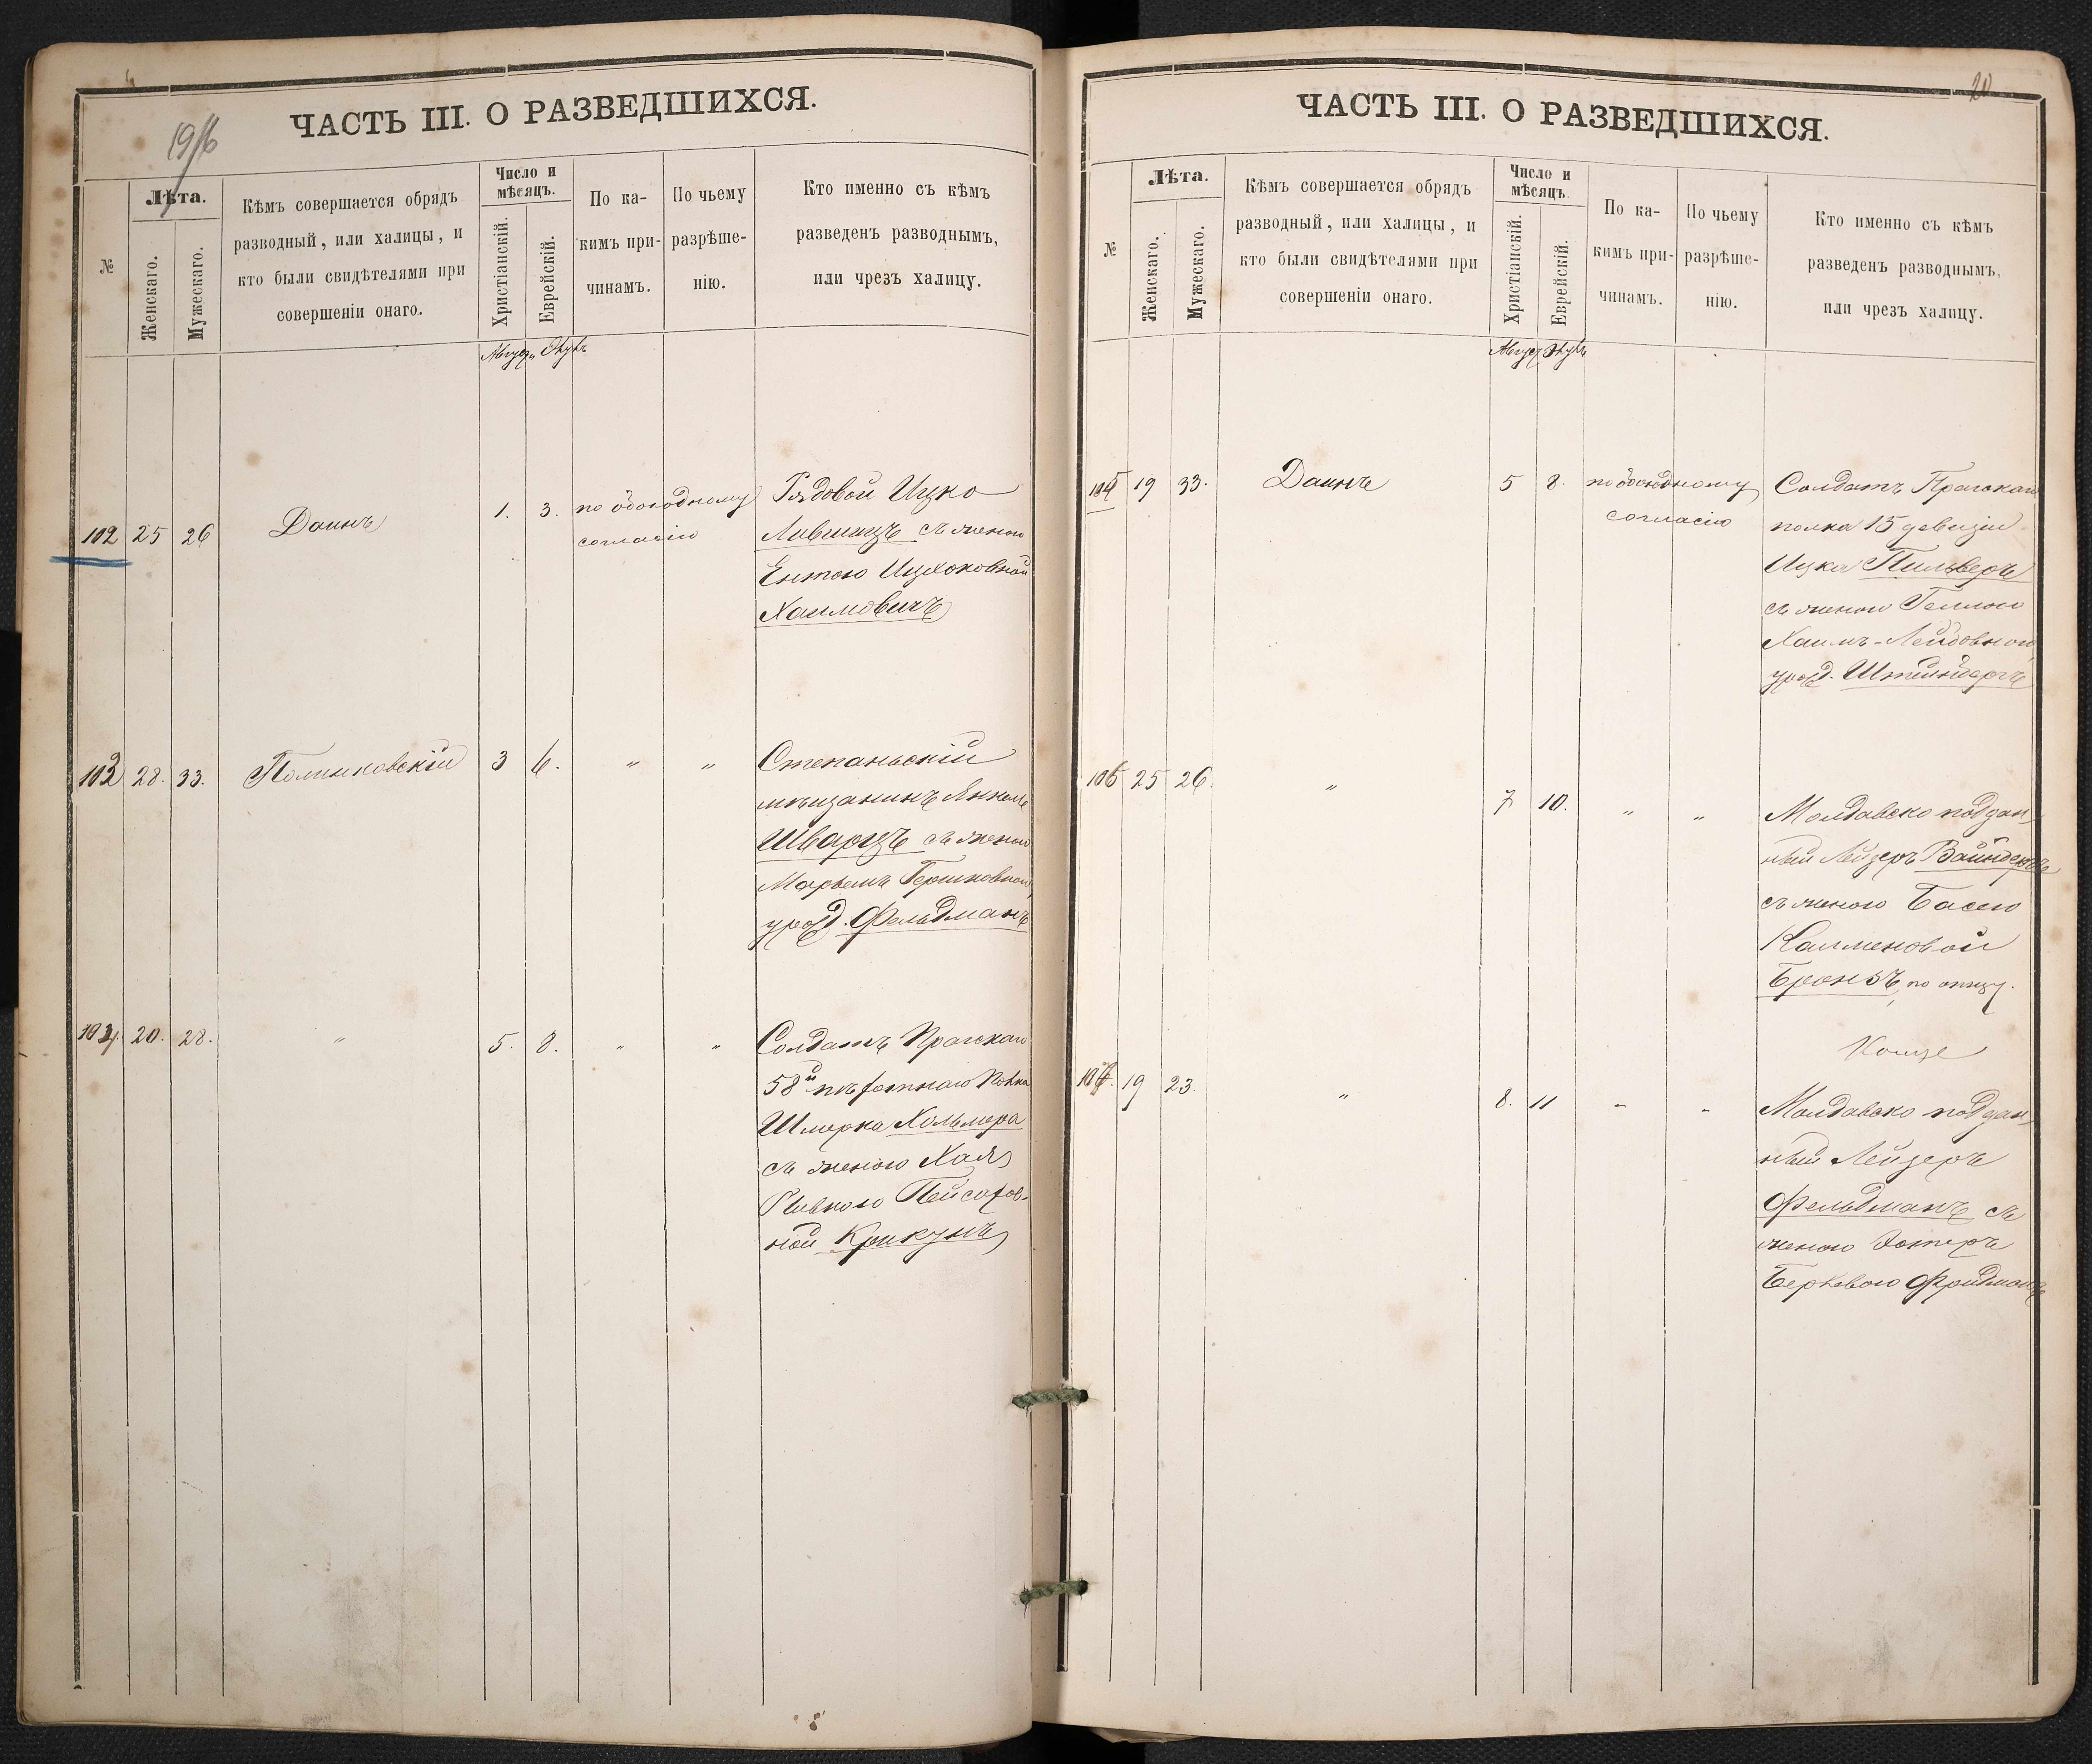 19/16
ЧАСТЬ III. О РАЗВЕДШИХСЯ.
№
Лѣта.
Женскаго.
Мужескаго.
Кѣмъ совершается обрядъ
разводный, или халицы, и
кто были свидѣтелями при
совершеніи онаго.
Число и
мѣсяцъ.
Христіанскій.
Еврейскій.
По ка-
кимъ при-
чинамъ.
По чьему
разрѣше-
нію.
Кто именно съ кѣмъ
разведенъ разводнымъ,
или чрезъ халицу.
102 25 26 Даинъ 1. 3. по обоюдному
согласію
Рядовой Ицко
Лившицъ съ женою
Ентою Ицхоковной
Хаимовичъ
103 28. 33. Полинковскій 3 6. " "
Степаньскій
мѣщанинъ Янкель
Шварцъ съ женою
Марьемъ Гершковною,
урожд. Фельдманъ
104. 20. 28. " 5. 8. " "
Солдатъ Прагскаго
58й пѣхотнаго полка
Шмерка Хольмера
съ женою Хая
Ривкою Пейсахов-
ной Крикунъ
20
ЧАСТЬ III. О РАЗВЕДШИХСЯ.
№
Лѣта.
Женскаго.
Мужескаго.
Кѣмъ совершается обрядъ
разводный, или халицы, и
кто были свидѣтелями при
совершеніи онаго.
Число и
мѣсяцъ.
Христіанскій.
Еврейскій.
По ка-
кимъ при-
чинамъ.
По чьему
разрѣше-
нію.
Кто именно съ кѣмъ
разведенъ разводнымъ,
или чрезъ халицу.
19 33. Даинъ 5 8. по обоюдному
согласію
Солдатъ Прагскаго
полка 15 дивизіи
Ицка Пильверъ
съ женою
Хаимъ-Лейбовною,
урожд. Штейнбергъ
25 26. " 7 10. " "
Молдавско поддан-
ный Лейзеръ
съ женою Басею
Калменовой
Бронзъ, по отцу.
19 23. " 8. 11 " "
Молдавско поддан-
ный Лейзеръ
Фельдманъ съ
женою Эстеръ
Берковою Фридманъ